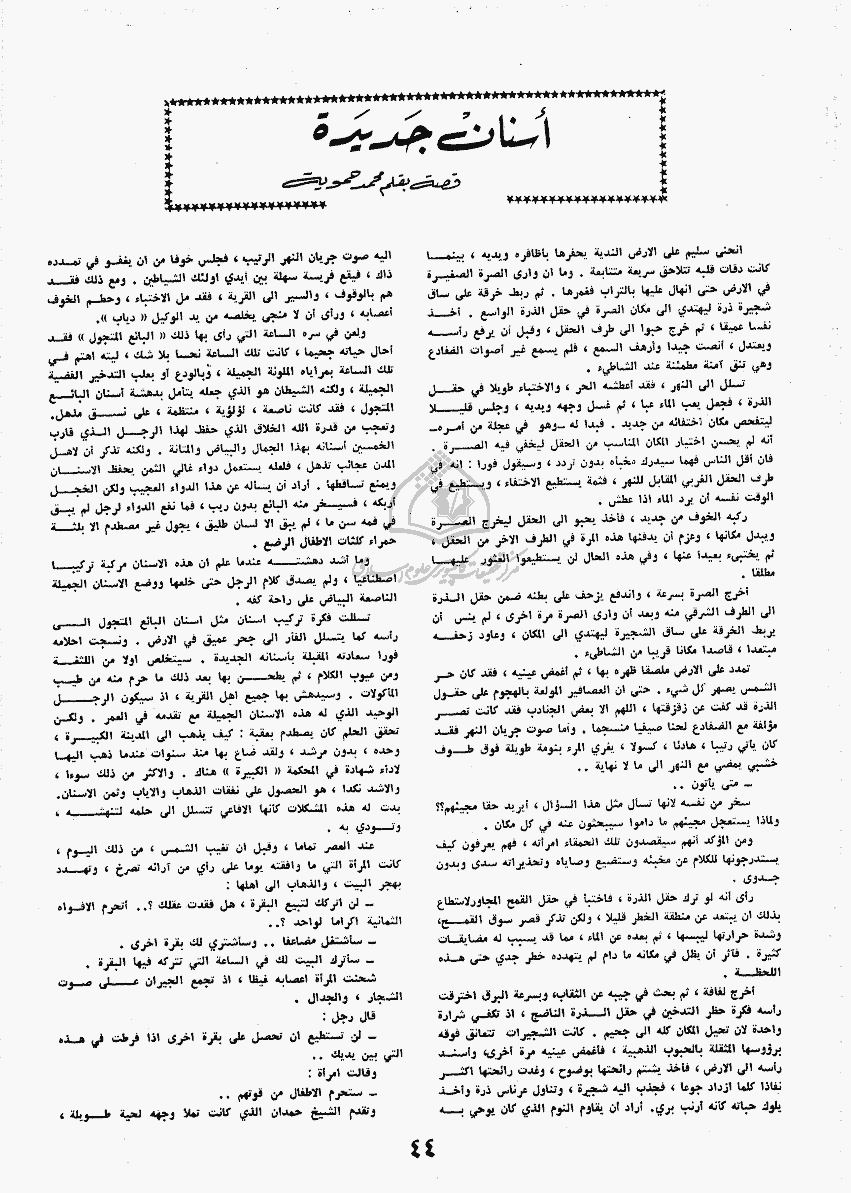 أسنان جديدة
قصة بقلم محمد حموية
انحنى سليم على الارض الندية يحفرها بأظافره ويديه ، بينمـا
كانت دقات قلبه تتلاحق سريعة متتابعة . وما ان وارى الصرة الصغيرة
في الارض حتى انهال عليها بالتراب فغمرها . ثم ربط خرقة على ساق
شجيرة ذرة ليهتدي الى مكان الصرة في حقل الذرة الواسع . أخــذ
نفسا عميقا ، ثم خرج حبوا الى طرف الحقل ، وقبل أن يرفع رأســه
ويعتدل ، أنصت جيدا وأرهف السمع ، فلم يسمع غير أصوات الضفادع
وهي تنق آمنة مطمئنة عند الشاطىء .
تسلل الى النهر ، فقد أعطشه الحر ، والاختباء طويلا في حقــل
الذرة ، فجعل يعب الماء عبا ، ثم غسل وجهه ويديه ، وجلس قليــلا
ليتفحص مكان اختفائه من جديد . فبدا له ــ وهو في عجلة من أمره ــ
أنه لم يحسن اختيار المكان المناسب من الحقل ليخفي فيه الصــرة .
فان أقل الناس فهما سيدرك مخبأه بدون تردد ، وسيقول فورا : انه في
طرف الحقل الغربي المقابل للنهر ، فثمة يستطيع الاختفاء ، ويستطيع في
الوقت نفسه أن يرد الماء اذا عطش .
ركبه الخوف من جديد ، فأخذ يحبو الى الحقل ليخرج الصــرة
ويبدل مكانها ، وعزم أن يدفنها هذه المرة في الطرف الاخر من الحقل ،
ثم يختبىء بعيدا عنها ، وفي هذه الحال لن يستطيعوا العثور عليهـا
مطلقا .
أخرج الصرة بسرعة ، واندفع يزحف على بطنه ضمن حقل الــذرة
الى الطرف الشرقي منه وبعد أن وارى الصرة مرة اخرى ، لم ينس أن
يربط الخرقة على ساق الشجيرة ليهتدي الى المكان ، وعاود زحفــه
مبتعدا ، قاصدا مكانا قريبا من الشاطىء .
تمدد على الارض ملصقا ظهره بها ، ثم أغمض عينيه ، فقد كان حـر
الشمس يصهر كل شيء . حتى ان العصافير المولعة بالهجوم على حقـول
الذرة قد كفت عن زقزقتها ، اللهم الا بعض الجنادب فقد كانت تصــر
مؤلفة مع الضفادع لحنا صيفيا منسجما . وأما صوت جريان النهر فقــد
كان يأتي رتيبا ، هادئا ، كسولا ، يغري المرء بنومة طويلة فوق طــوف
خشبي يمضي مع النهر الى ما لا نهاية ..
ــ متى يأتون ..
سخر من نفسه لانها تسأل مثل هذا السؤال ، أيريد حقا مجيئهم؟؟
ولماذا يستعجل مجيئهم ما داموا سيبحثون عنه في كل مكان .
ومن المؤكد أنهم سيقصدون تلك الحمقاء امرأته ، فهم يعرفون كيف
يستدرجونها للكلام عن مخبئه وستضيع وصاياه وتحذيراته سدى وبدون
جــدوى .
رأى أنه لو ترك حقل الذرة ، فاختبأ في حقل القمح المجاور لاستطاع
بذلك ان يبتعد عن منطقة الخطر قليلا ، ولكن تذكر قصر سوق القمــح،
وشدة حرارتها ليبسها ، ثم بعده عن الماء ، مما قد يسبب له مضايقات
كثيرة . فآثر أن يظل في مكانه ما دام لم يتهدده خطر جدي حتى هــذه
اللحظــة .
أخرج لفافة ، ثم بحث في جيبه عن الثقاب، وبسرعة البرق اخترقت
رأسه فكرة حظر التدخين في حقل الــذرة الناضج ، اذ تكفي شرارة
واحدة لان تحيل المكان كله الى جحيم . كانت الشجيرات تتعانق فوقه
برؤوسها المثقلة بالحبوب الذهبية ، فأغمض عينيه مرة اخرى، وأسنــد
رأسه الى الارض ، فأخذ يشتم رائحتها بوضوح ، وغدت رائحتها اكثــر
نفاذا كلما ازداد جوعا ، فجذب اليه شجيرة ، وتناول عرناس ذرة وأخـذ
يلوك حباته كأنه أرنب بري. أراد أن يقاوم النوم الذي كان يوحي بــه
اليه صوت جريان النهر الرتيب ، فجلس خوفا من ان يغفــو في تمـدده
ذاك ، فيقع فريسة سهلة بين أيدي اولئك الشياطين . ومع ذلك فقــد
هم بالوقوف ، والسير الى القرية ، فقد مل الاختباء ، وحطــم الخوف
أعصابه ، ورأى أن لا منجى يخلصه من يد الوكيل « دياب ».
ولعن في سره الساعة التي رأى بها ذلك « البائع المتجول » فقــد
أحال حياته جحيما ، كانت تلك الساعة نحسا بلا شك ، ليته اهتم فــي
تلك الساعة بمراياه الملونة الجميلة ، وبالودع أو بعلب التدخير الفضية
الجميلة ، ولكنه الشيطان هو الذي جعله يتأمل بدهشة أسنان البائــع
المتجول ، فقد كانت ناصعة ، لؤلؤية ، منتظمة ، على نســق مذهل.
وتعجب من قدرة الله الخلاق الذي حفظ لهذا الرجــل الــذي قارب
الخمسين أسنانه بهذا الجمال والبياض والمتانة . ولكنه تذكر أن لاهــل
المدن عجائب تذهل ، فلعله يستعمل دواء غالي الثمن يحفظ الاسنــان
ويمنع تساقطها . أراد أن يسأله عن هذا الدواء العجيب ولكن الخجــل
أربكه ، فسيسخر منه البائع بدون ريب ، فما نفع الدواء لرجل لم يبـق
في فمه سن ما ، لم يبق الا لسان طليق ، يجول غير مصطدم الا بلثــة
حمراء كلثات الاطفال الرضع .
وما أشد دهشتــه عندما علم ان هذه الاسنان مركبة تركيبــا
اصطناعيا ، ولم يصدق كلام الرجل حتى خلعها ووضع الاسنان الجميلة
الناصعة البياض على راحة كفه .
تسللت فكرة تركيب اسنان مثل اسنان البائع المتجول الــى
رأسه كما يتسلل الفأر الى جحر عميق في الارض . ونسجت احلامه
فورا سعادته المقبلة بأسنانه الجديدة . سيتخلص اولا من اللثغــة
ومن عيوب الكلام ، ثم يطحــن بها بعد ذلك ما حرم منه من طيــب
المأكولات . وسيدهش بها جميع اهل القرية ، اذ سيكون الرجــل
الوحيد الذي له هذه الاسنان الجميلة مع تقدمه في العمر . ولكــن
تحقق الحلم كان يصطدم بعقبة : كيف يذهب الى المدينة الكبيــرة ،
وحده ، بدون مرشد ، ولقد ضاع بها منذ سنوات عندما ذهب اليهــا
لاداء شهادة في المحكمة « الكبيرة » هناك . والاكثر من ذلك سوءا ،
والاشد نكدا ، هو الحصول على نفقات الذهاب والاياب وثمن الاسنان.
بدت له هذه المشكلات كأنها الافاعي تتسلل الى حلمه لتنهشــه ،
وتــودي به .
عند العصر تماما ، وقبل ان تغيب الشمس ، من ذلك اليــوم ،
كانت المرأة التي ما وافقته يوما على رأي من آرائه تصرخ ، وتهــدد
بهجر البيت ، والذهاب الى اهلها :
ــ لن اتركك لتبيع البقرة ، هل فقدت عقلك ؟.. أتحرم الافــواه
الثمانية اكراما لواحد ؟..
ــ سأشتغل مضاعفا .. وسأشتري لك بقرة اخرى .
ــ سأترك البيت لك في الساعة التي تتركه فيها البقرة .
شحنت المرأة اعصابه غيظا ، اذ تجمع الجيران عــلى صوت
الشجار ، والجدال .
قال رجل :
ــ لن تستطيع ان تحصل على بقرة اخرى اذا فرطت في هــذه
التي بين يديك ..
وقالت امرأة :
ــ ستحرم الاطفال من قوتهم ..
وتقدم الشيخ حمدان الذي كانت تملأ وجهه لحية طــويلة ،
٤٤